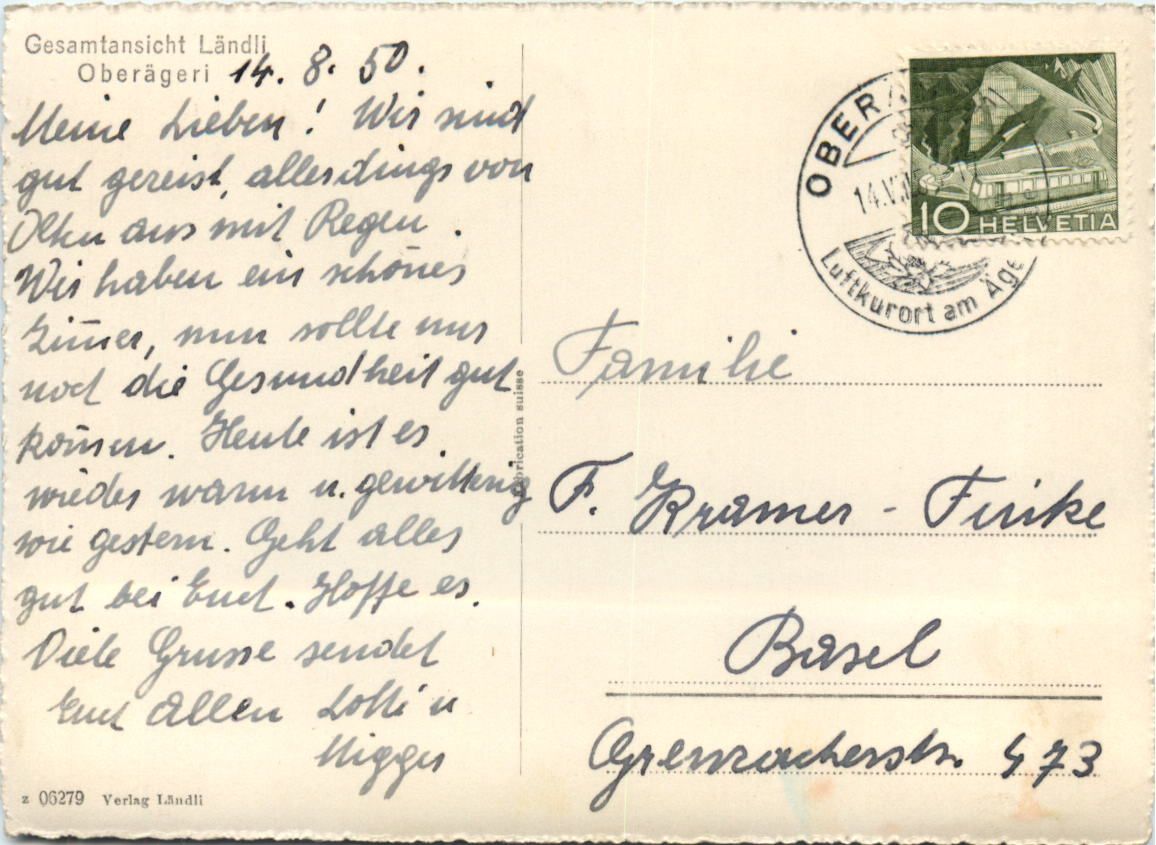 Gesamtansicht Ländli
Oberägeri 14. 8. 50.
Meine Lieben! Wir sind
gut gereist, allerdings von
Olten aus mit Regen.
Wir haben ein schönes
Zim̅er, nun sollte nur
noch die Gesundheit gut
kom̅en. Heute ist es
wieder warm u. gewitterig
wie gestern. Geht alles
gut bei Euch. Hoffe es.
Viele Grüsse sendet
Euch allen Lotti u
Migger
z 06279 Verlag Ländli
fabrication suisse
OBERÄ
14.VI
Luftkurort am Äge
10 HELVETIA
Familie
F. Kramer - Finke
Basel
Grenzacherstr. 473